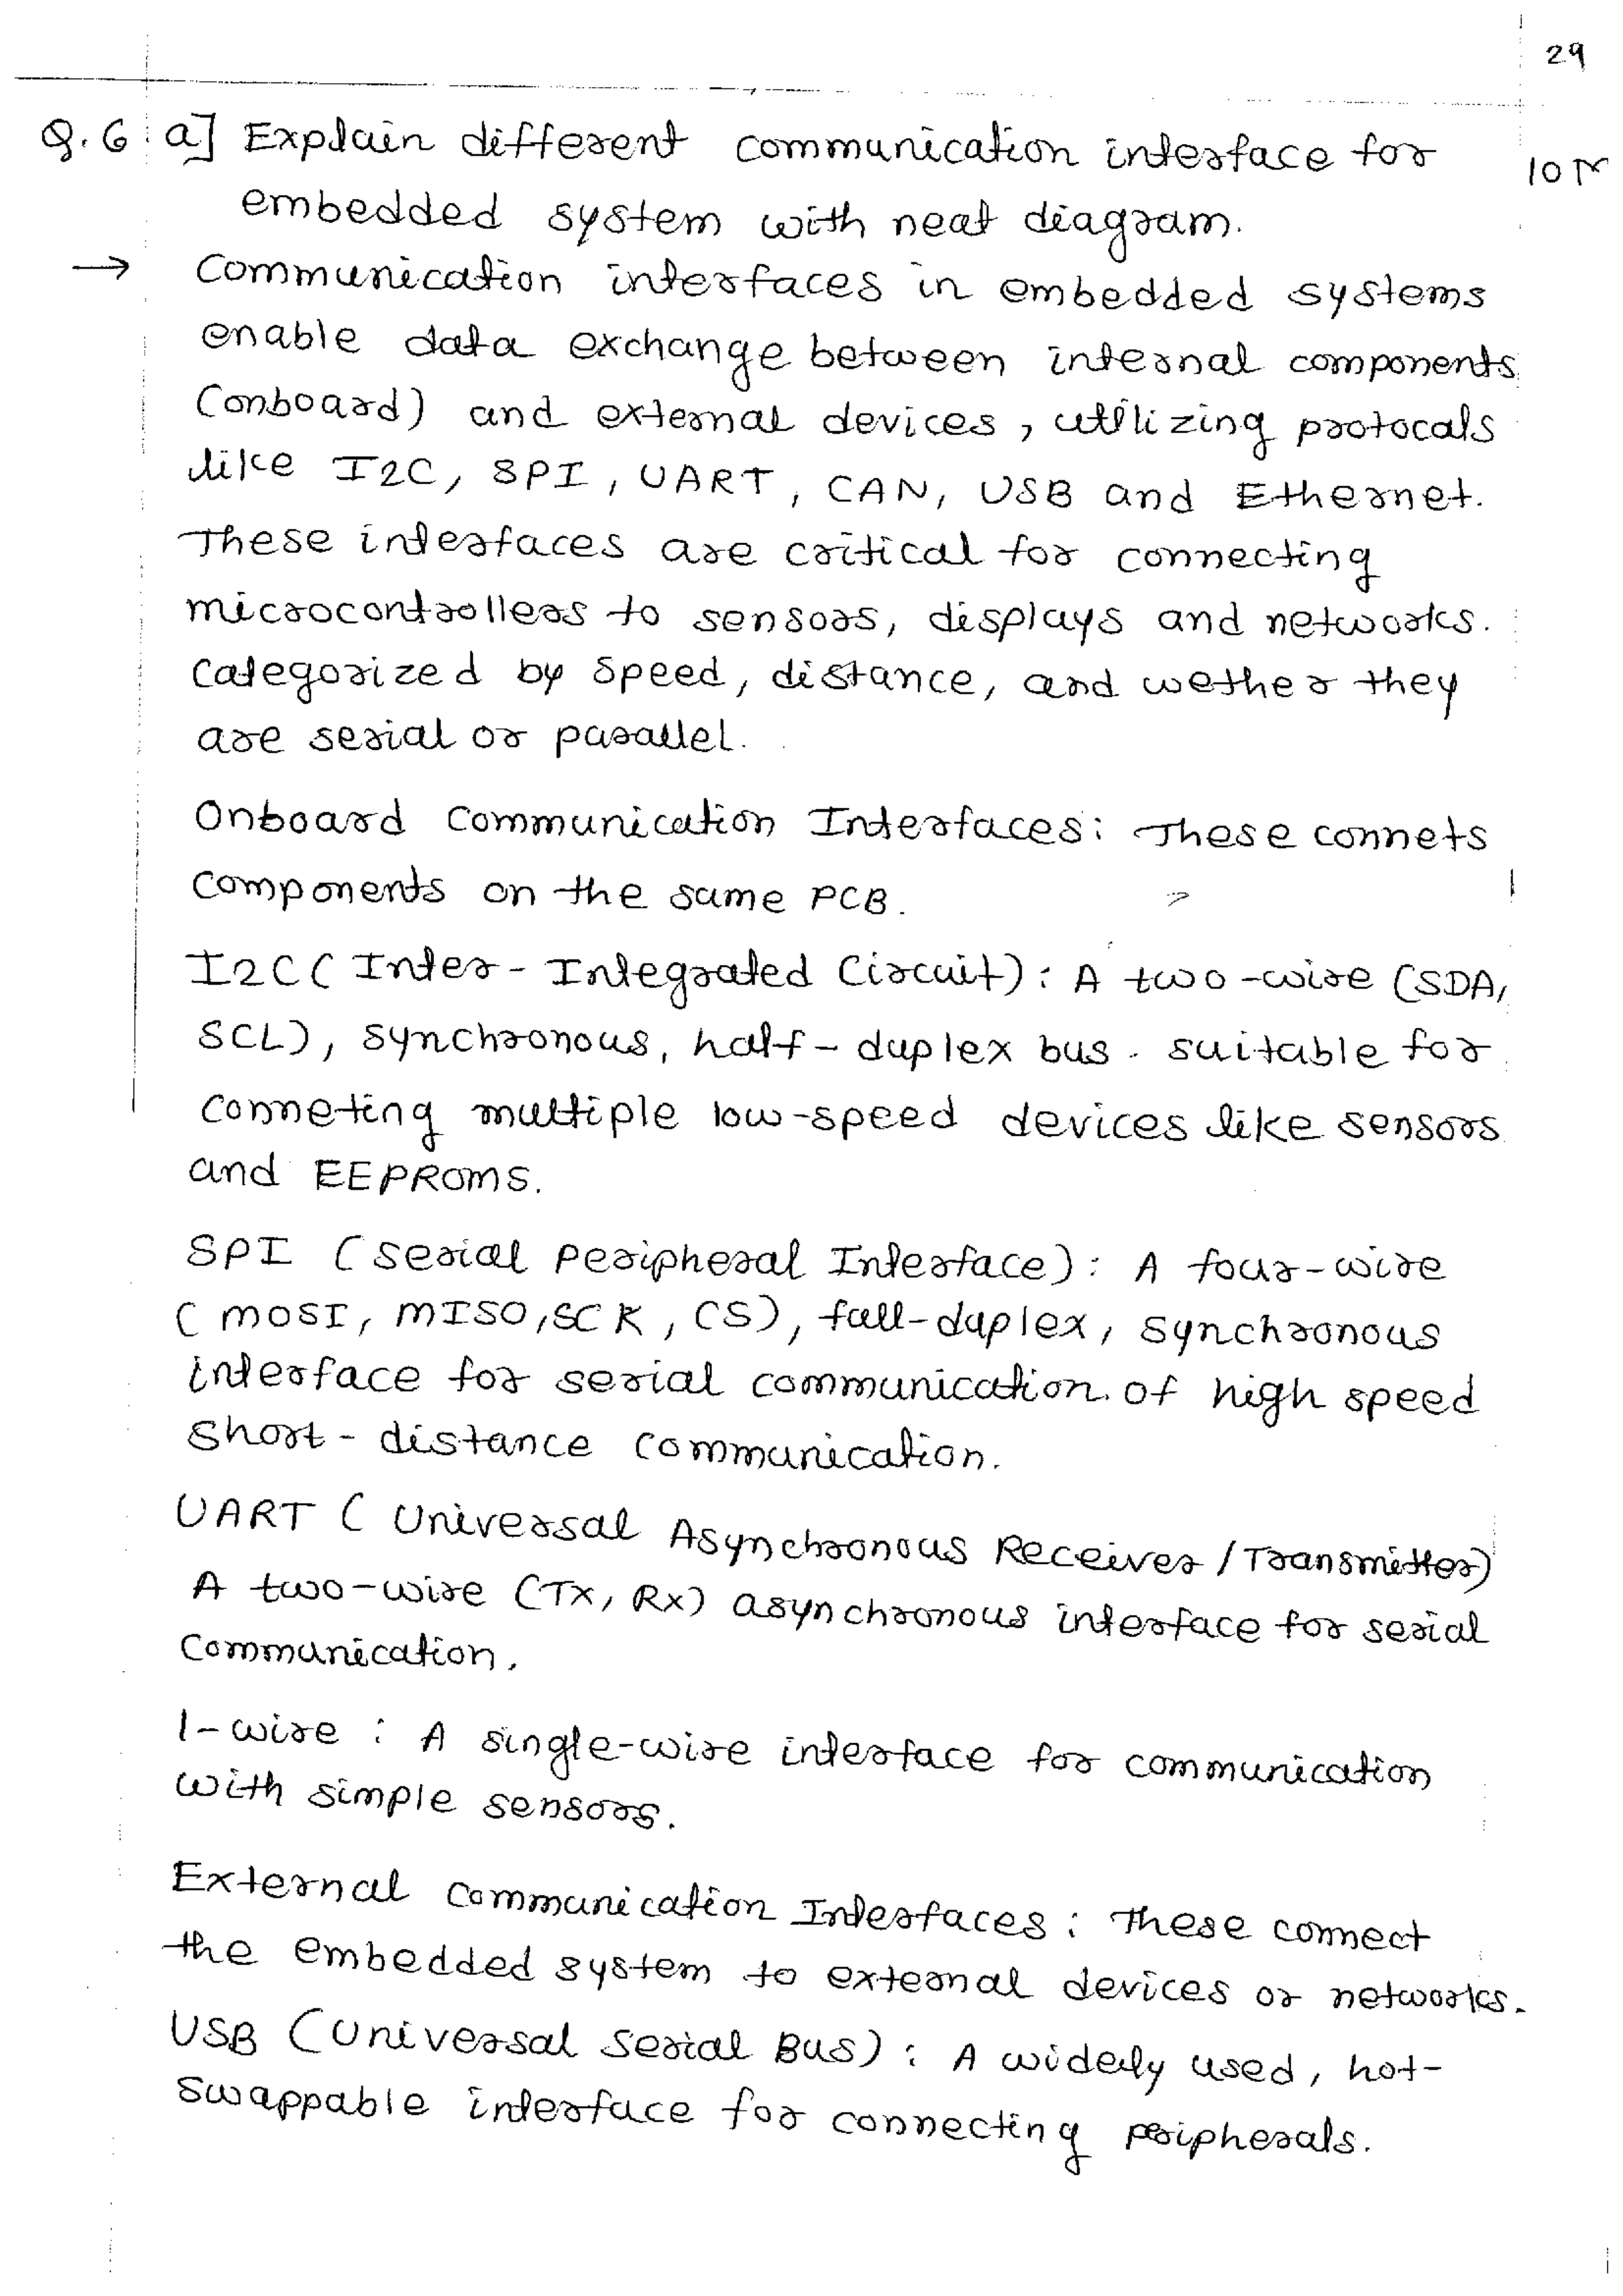 29
Q.6 a] Explain different communication interface for
10 M
embedded system with neat diagram.
→ Communication interfaces in embedded systems
enable data exchange between internal components
(onboard) and external devices, utilizing protocals
like I2C, SPI, UART, CAN, USB and Ethernet.
These interfaces are critical for connecting
microcontrollers to sensors, displays and networks.
Categorized by speed, distance, and wether they
are serial or parallel.
Onboard Communication Interfaces: These connets
components on the same PCB.
I2C (Inter-Integrated Circuit): A two-wire (SDA,
SCL), synchronous, half-duplex bus. suitable for
conneting multiple low-speed devices like sensors
and EEPROMS.
SPI (Serial Peripheral Interface): A four-wire
(MOSI, MISO, SCK, CS), full-duplex, synchronous
interface for serial communication of high speed
short-distance communication.
UART (Universal Asynchronous Receiver/Transmitter)
A two-wire (Tx, Rx) asynchronous interface for serial
communication.
1-wire : A single-wire interface for communication
with simple sensors.
External communication Interfaces: These connect
the embedded system to external devices or networks.
USB (Universal Serial Bus): A widely used, hot-
swappable interface for connecting peripherals.